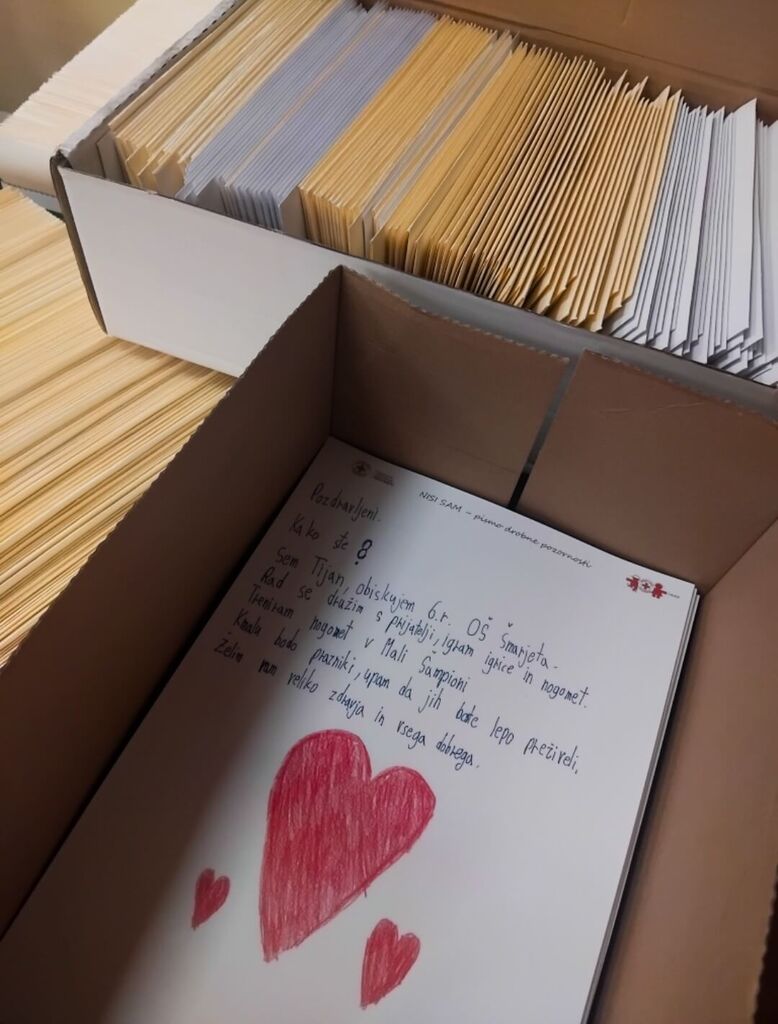 NISI SAM – pismo drobne pozornosti
Pozdravljeni.
Kako ste ?
Sem Tijan, obiskujem 6.r. OŠ Šmarjeta.
Rad se družim s prijatelji, igram igrice in nogomet.
Treniram nogomet v Mali Šampioni
Kmalu bodo prazniki, upam da jih boste lepo preživeli,
želim vam veliko zdravja in vsega dobrega.